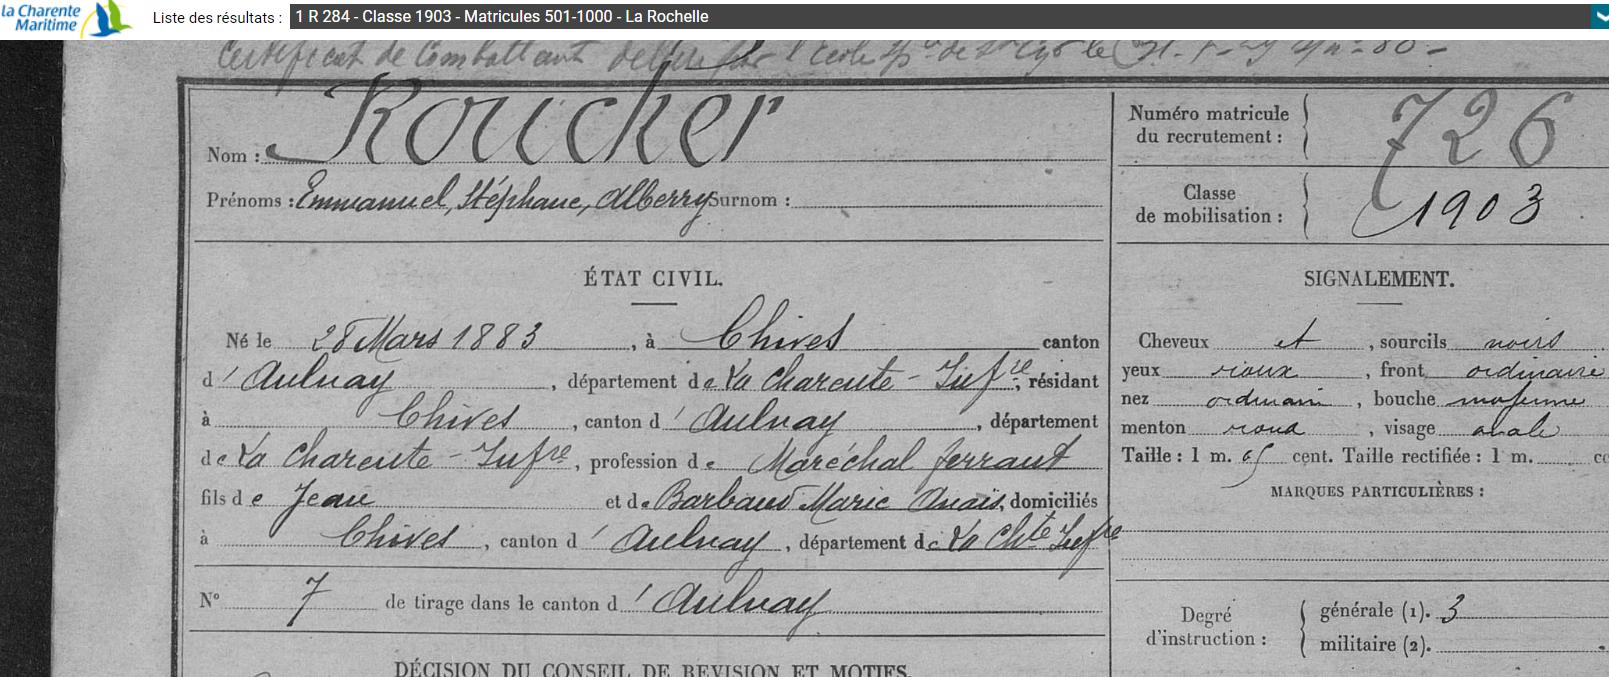 la Charente
Maritime
Liste des résultats : 1 R 284 - Classe 1903 - Matricules 501-1000 - La Rochelle
Certificat de Combattant délivré par l'Ecole de St Cyr le
Nom : Roucker
Prénoms : Emmanuel, Stéphane, Alberry Surnom :
Numéro matricule
du recrutement : 726
Classe
de mobilisation : 1903
ÉTAT CIVIL.
Né le 28 Mars 1883, à Chives canton
d'Aulnay, département de La Charente-Infre, résidant
à Chives, canton d'Aulnay, département
de La Charente-Infre, profession de Maréchal ferrant
fils de Jean et de Barbaud Marie Anaïs, domiciliés
à Chives, canton d'Aulnay, département de La Chte Infre
N° 7 de tirage dans le canton d'Aulnay
DÉCISION DU CONSEIL DE REVISION ET MOTIFS.
SIGNALEMENT.
Cheveux et, sourcils noirs
yeux roux, front ordinaire
nez ordinair, bouche moyenne
menton rond, visage ovale
Taille : 1 m. 65 cent. Taille rectifiée : 1 m.
MARQUES PARTICULIÈRES :
Degré
d'instruction :
générale (1). 3
militaire (2).